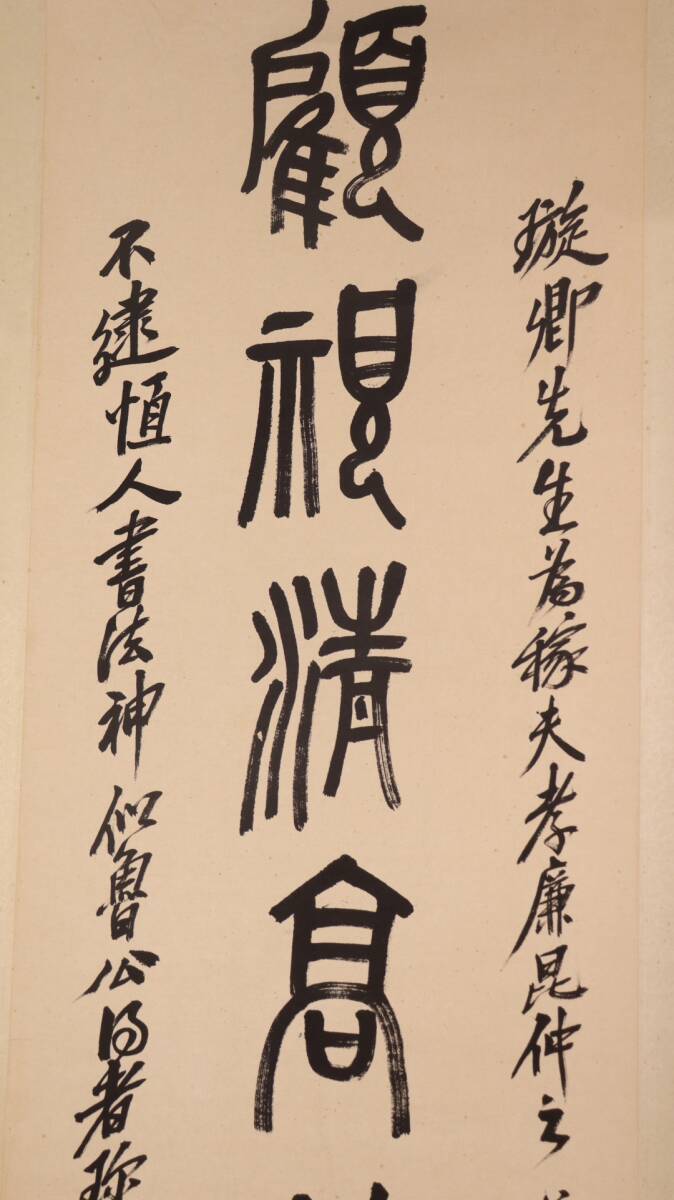 璇卿先生為稼夫孝廉昆仲之
顧視清高
不逮恒人書法神似魯公得者珍